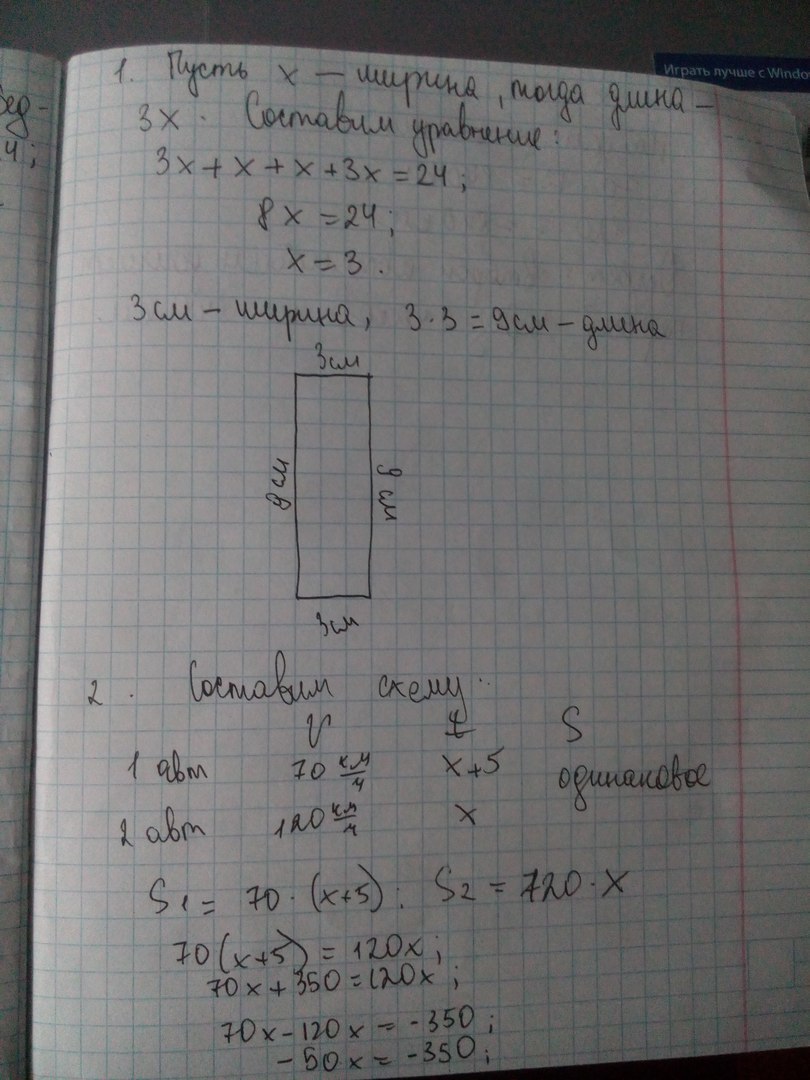 Играть лучше с Windo
1. Пусть x — ширина, тогда длина —
3x. Составим уравнение:
3x + x + x + 3x = 24;
8x = 24;
x = 3.
3см — ширина, 3·3 = 9см — длина
3см
9см
9см
3см
2. Составим схему:
V t S
1 авт 70 км/ч x+5 одинаковое
2 авт 120 км/ч x
S1 = 70·(x+5); S2 = 720·x
70(x+5) = 120x;
70x + 350 = 120x;
70x - 120x = -350;
-50x = -350;